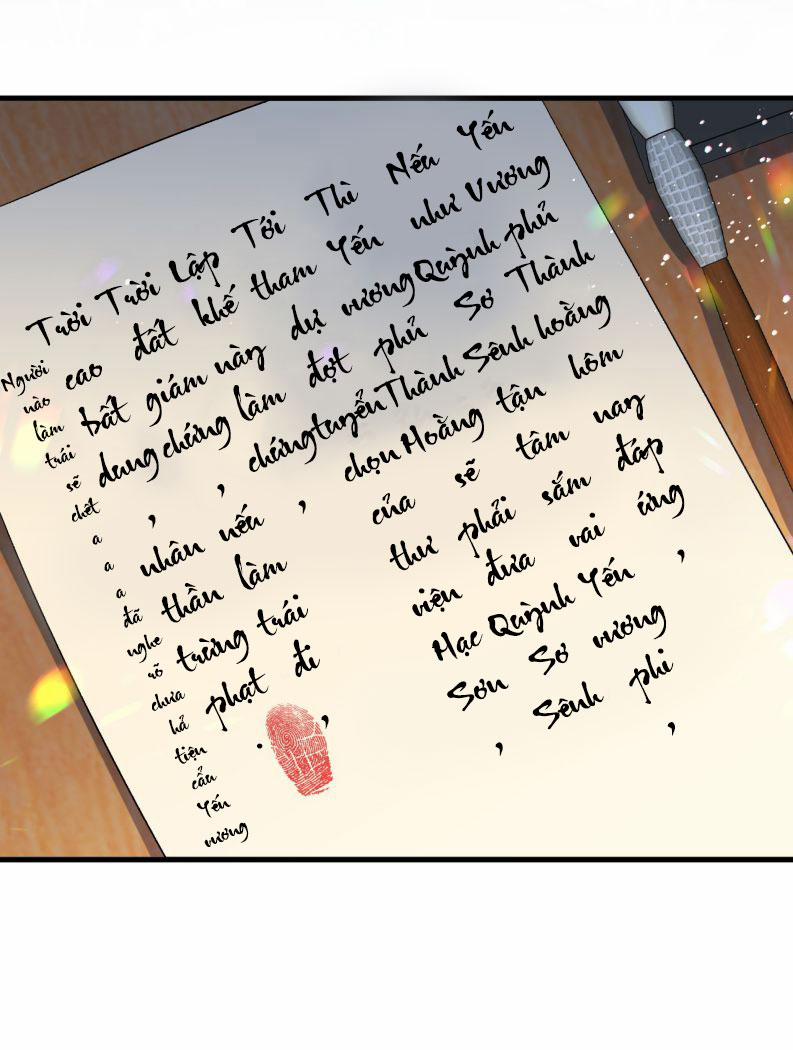 Yến Vương phủ Thành hoằng hôm nay đáp ứng ,
Nếu như Quỳnh Sơ Sênh tận tâm sắm vai Yến vương phi ,
Thì Yến vương phủ Thành Hoằng sẽ phải đưa Quỳnh Sơ Sênh
Tới tham dự đợt tuyển chọn của thư viện Hạc Sơn ,
Lập khế này làm chứng ,
Trời đất giám chứng , nếu làm trái đi ,
Trời cao bất dung , nhân thần trừng phạt .
Người nào làm trái sẽ chết a a a đã nghe rõ chưa hả tiện cẩu Yến vương